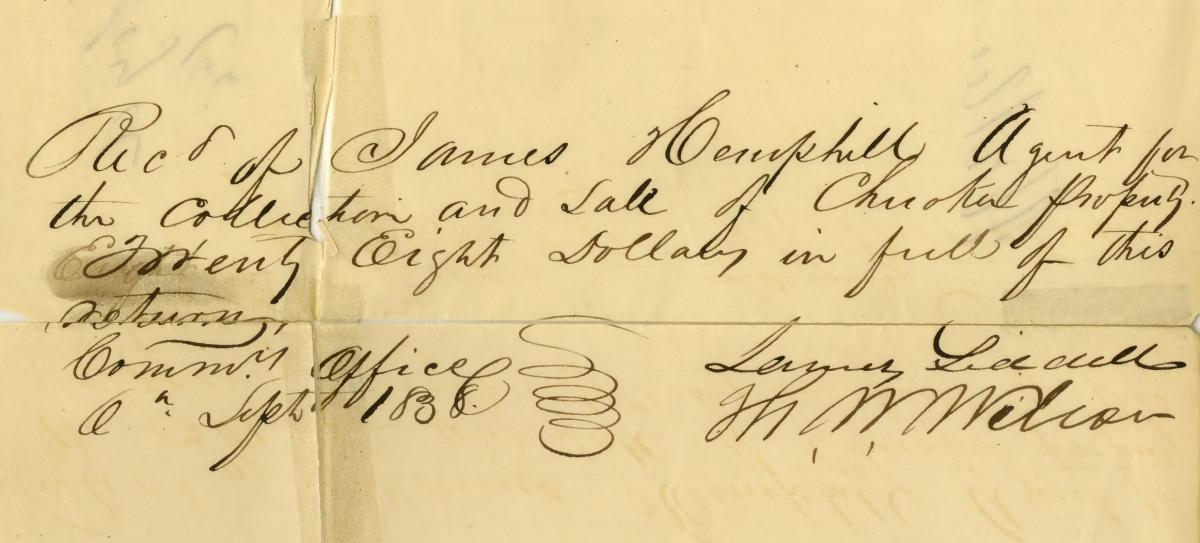 Recd of James Hemphill Agent for
the Collection and Sale of Cherokee property.
Twenty Eight Dollars in full of this
return,
Commrs Office
Sept 1838
James Liddell
W Wilson